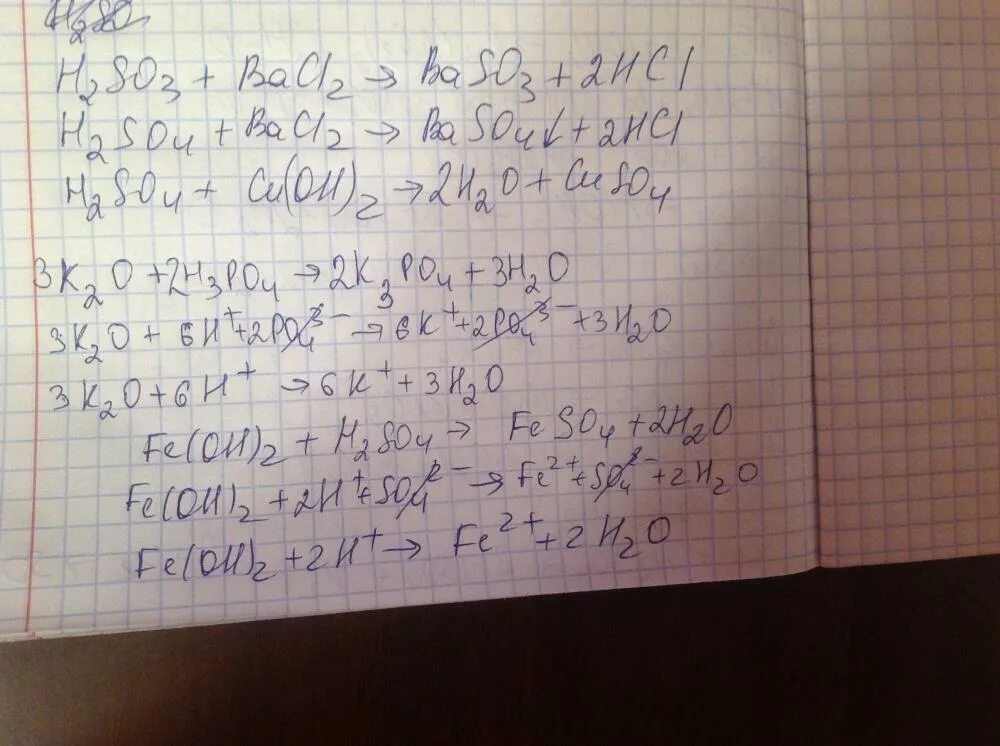 H₂SO
H₂SO₃ + BaCl₂ → BaSO₃ + 2HCl
H₂SO₄ + BaCl₂ → BaSO₄↓ + 2HCl
H₂SO₄ + Cu(OH)₂ → 2H₂O + CuSO₄
3K₂O + 2H₃PO₄ → 2K₃PO₄ + 3H₂O
3K₂O + 6H⁺ + 2PO₄³⁻ → 6K⁺ + 2PO₄³⁻ + 3H₂O
3K₂O + 6H⁺ → 6K⁺ + 3H₂O
Fe(OH)₂ + H₂SO₄ → FeSO₄ + 2H₂O
Fe(OH)₂ + 2H⁺ + SO₄²⁻ → Fe²⁺ + SO₄²⁻ + 2H₂O
Fe(OH)₂ + 2H⁺ → Fe²⁺ + 2H₂O